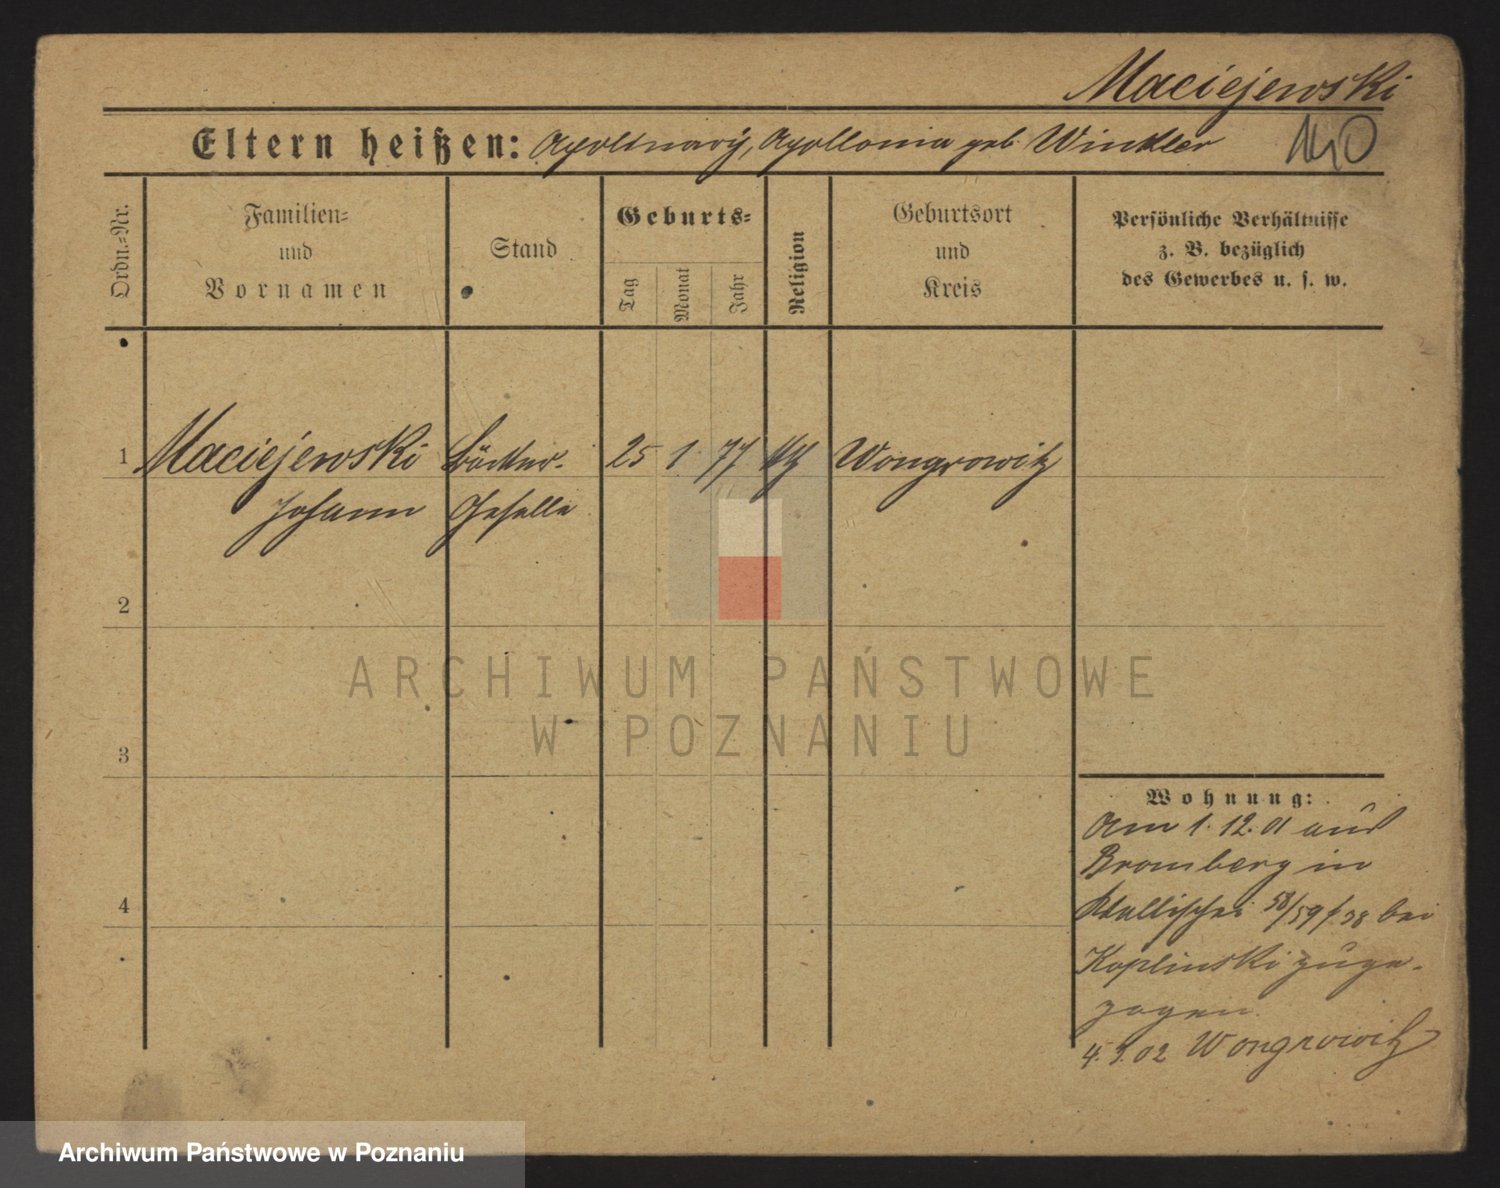 Maciejewski
Eltern heißen: Apollinary, Apollonia geb. Winkler
140
Ordn.-Nr.
Familien-
und
Vornamen
Stand
Geburts-
Tag
Monat
Jahr
Religion
Geburtsort
und
Kreis
Persönliche Verhältnisse
z. B. bezüglich
des Gewerbes u. s. w.
1 Maciejewski Bäcker- 25 1. 77 kth Wongrowitz
Johann Geselle
2
3
4
Wohnung:
Am 1. 12. 01 aus
Bromberg in
Wallischei 58/59 f. 38 bei
Koplinski zuge-
zogen.
4. 9. 02 Wongrowitz
ARCHIWUM PAŃSTWOWE
W POZNANIU
Archiwum Państwowe w Poznaniu